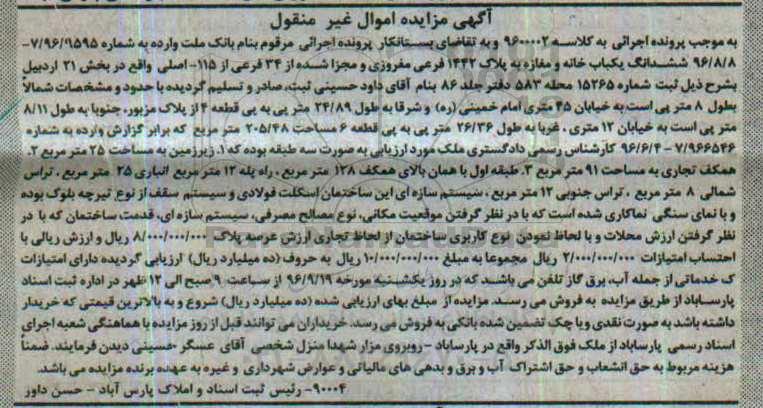 آگهی مزایده اموال غیر منقول
به موجب پرونده اجرائی به کلاسه ۹۶۰۰۰۰۲ و به تقاضای بستانکار پرونده اجرائی مرقوم بنام بانک ملت وارده به شماره ۷/۹۶/۹۵۹۵-
۹۶/۸/۸ ششدانگ یکباب خانه و مغازه به پلاک ۱۴۴۲ فرعی مفروزی و مجزا شده از ۳۴ فرعی از ۱۱۵- اصلی واقع در بخش ۲۱ اردبیل
بشرح ذیل ثبت شماره ۱۵۲۶۵ محله ۵۸۳ دفتر جلد ۸۶ بنام آقای داود حسینی ثبت، صادر و تسلیم گردیده با حدود و مشخصات شمالاً
بطول ۸ متر پی است به خیابان ۴۵ متری امام خمینی (ره) و شرقا به طول ۲۴/۸۹ متر پی به پی قطعه ۴ از پلاک مزبور، جنوبا به طول ۸/۱۱
متر پی است به خیابان ۱۲ متری ، غربا به طول ۲۶/۳۶ متر پی به پی قطعه ۶ مساحت ۲۰۵/۴۸ متر مربع که برابر گزارش وارده به شماره
۷/۹۶۶۵۴۶ - ۹۶/۶/۴ کارشناس رسمی دادگستری ملک مورد ارزیابی به صورت سه طبقه بوده که ۱. زیرزمین به مساحت ۲۵ متر مربع ۲.
همکف تجاری به مساحت ۹۱ متر مربع ۳. طبقه اول با همان بالای همکف ۱۲۸ متر مربع ، راه پله ۱۲ متر مربع انباری ۲۵ متر مربع ، تراس
شمالی ۸ متر مربع ، تراس جنوبی ۱۲ متر مربع ، سیستم سازه ای این ساختمان اسکلت فولادی و سیستم سقف از نوع تیرچه بلوک بوده
و با نمای سنگی نماکاری شده است که با در نظر گرفتن موقعیت مکانی، نوع مصالح مصرفی، سیستم سازه ای، قدمت ساختمان که با در
نظر گرفتن ارزش محلات و با لحاظ نمودن نوع کاربری ساختمان از لحاظ تجاری ارزش عرصه پلاک ۸/۰۰۰/۰۰۰/۰۰۰ ریال و ارزش ریالی با
احتساب امتیازات ۲/۰۰۰/۰۰۰/۰۰۰ ریال مجموعا به مبلغ ۱۰/۰۰۰/۰۰۰/۰۰۰ ریال به حروف (ده میلیارد ریال) ارزیابی گردیده دارای امتیازات
ک خدماتی از جمله آب، برق گاز تلفن می باشد که در روز یکشنبه مورخه ۹۶/۹/۱۹ از ساعت ۹ صبح الی ۱۲ ظهر در اداره ثبت اسناد
پارساباد از طریق مزایده به فروش می رسد. مزایده از مبلغ بهای ارزیابی شده (ده میلیارد ریال) شروع و به بالاترین قیمتی که خریدار
داشته باشد به صورت نقدی ویا چک تضمین شده بانکی به فروش می رسد. خریداران می توانند قبل از روز مزایده با هماهنگی شعبه اجرای
اسناد رسمی پارساباد از ملک فوق الذکر واقع در پارساباد - روبروی مزار شهدا منزل شخصی آقای عسگر حسینی دیدن فرمایند. ضمناً
هزینه مربوط به حق انشعاب و حق اشتراک آب و برق و بدهی های مالیاتی و عوارض شهرداری و غیره به عهده برنده مزایده می باشد.
۹۰۰۰۴- رئیس ثبت اسناد و املاک پارس آباد - حسن داور